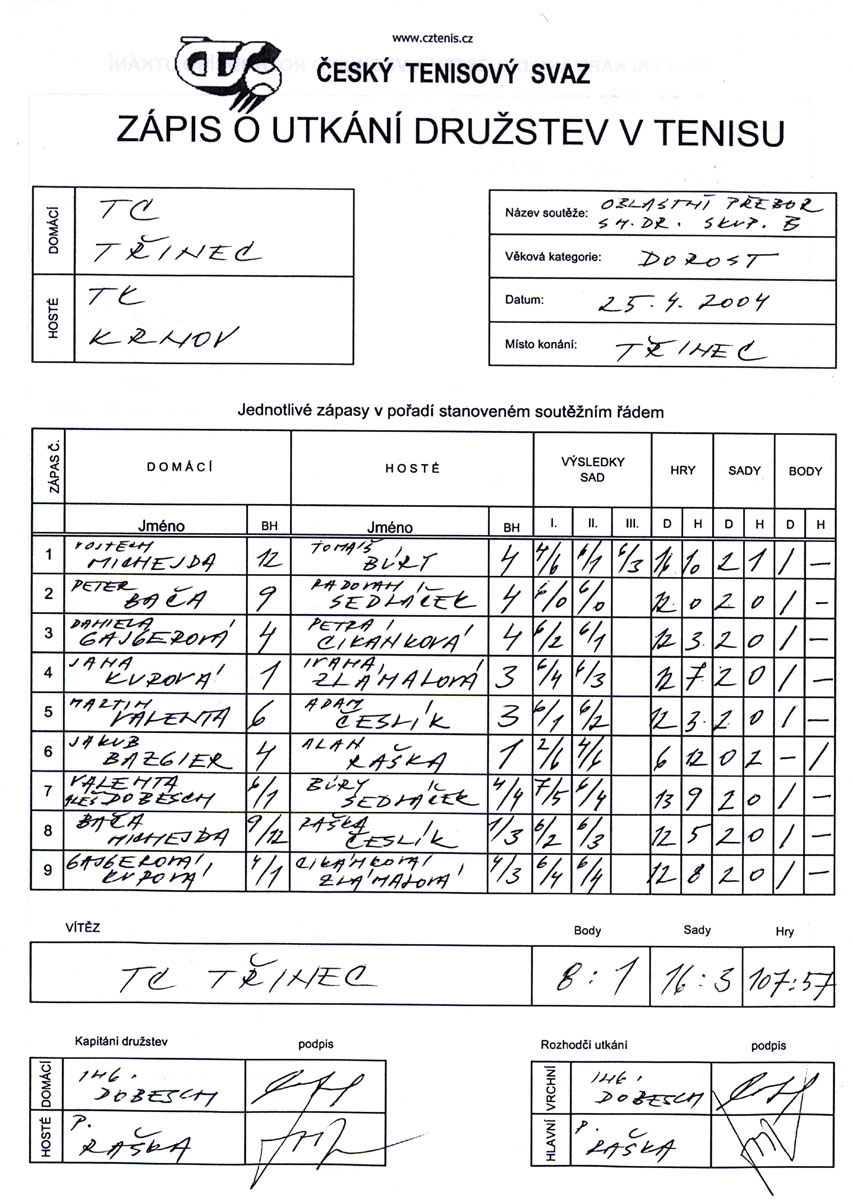 www.cztenis.cz
ČTS
ČESKÝ TENISOVÝ SVAZ
ZÁPIS O UTKÁNÍ DRUŽSTEV V TENISU
DOMÁCÍ TC TŘINEC
HOSTÉ TK KRNOV
Název soutěže: OBLASTNÍ PŘEBOR
SM. DR. SKUP. B
Věková kategorie: DOROST
Datum: 25.4.2004
Místo konání: TŘINEC
Jednotlivé zápasy v pořadí stanoveném soutěžním řádem
ZÁPAS Č. DOMÁCÍ HOSTÉ VÝSLEDKY SAD HRY SADY BODY
Jméno BH Jméno BH I. II. III. D H D H D H
1 VOJTĚCH MICHEJDA 12 TOMÁŠ BÚRY 4 4/6 6/1 6/3 16 10 2 1 1 –
2 PETER BAČA 9 RADOVAN SEDLÁČEK 4 6/0 6/0 12 0 2 0 1 –
3 DANIELA GAJGEROVÁ 4 PETRA CIKÁNKOVÁ 4 6/2 6/1 12 3 2 0 1 –
4 JANA KUPOVÁ 1 IVANA ZLÁMALOVÁ 3 6/4 6/3 12 7 2 0 1 –
5 MARTIN VALENTA 6 ADAM ČESLÍK 3 6/1 6/2 12 3 2 0 1 –
6 JAKUB BAZGIER 4 ALAN RAŠKA 1 2/6 4/6 6 12 0 2 – 1
7 VALENTA ALEŠ DOBESCH 6/1 BÚRY SEDLÁČEK 4/4 7/5 6/4 13 9 2 0 1 –
8 BAČA MICHEJDA 9/12 RAŠKA ČESLÍK 1/3 6/2 6/3 12 5 2 0 1 –
9 GAJGEROVÁ KUPOVÁ 4/1 CIKÁNKOVÁ ZLÁMALOVÁ 4/3 6/4 6/4 12 8 2 0 1 –
VÍTĚZ Body Sady Hry
TC TŘINEC 8:1 16:3 107:57
Kapitáni družstev podpis
DOMÁCÍ ING. DOBESCH
HOSTÉ P. RAŠKA
Rozhodčí utkání podpis
VRCHNÍ ING. DOBESCH
HLAVNÍ P. RAŠKA